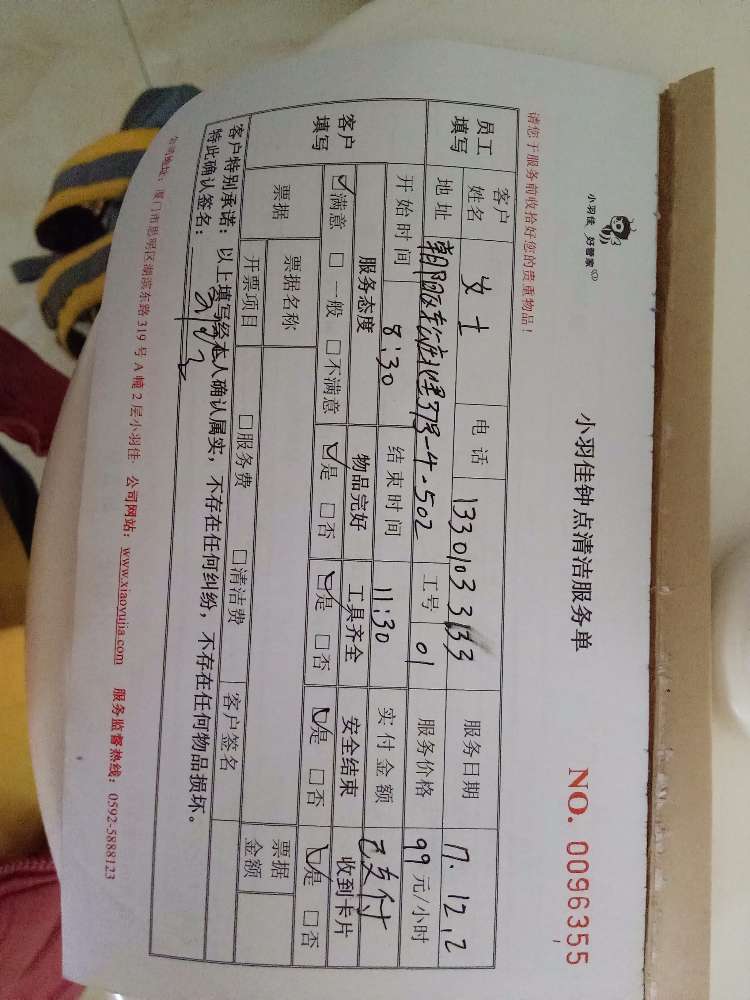 小羽佳 好管家
小羽佳钟点清洁服务单
NO. 0096355
请您于服务前收拾好您的贵重物品!
员工填写 客户姓名 女士 电话 13301033133 服务日期 17.12.2
地址 工号 01 服务价格 99元/小时
开始时间 8:30 结束时间 11:30 实付金额 已支付
客户填写 服务态度 物品完好 工具齐全 安全结束 收到卡片
☑满意 □一般 □不满意 ☑是 □否 ☑是 □否 ☑是 □否 ☑是 □否
票据 票据名称 客户签名 票据金额
开票项目 □服务费 □清洁费
客户特别承诺:以上填写经本人确认属实,不存在任何纠纷,不存在任何物品损坏。
特此确认签名:
公司地址:厦门市思明区湖滨东路319号A幢2层小羽佳 公司网站:www.xiaoyujia.com 服务监督热线:0592-5888123